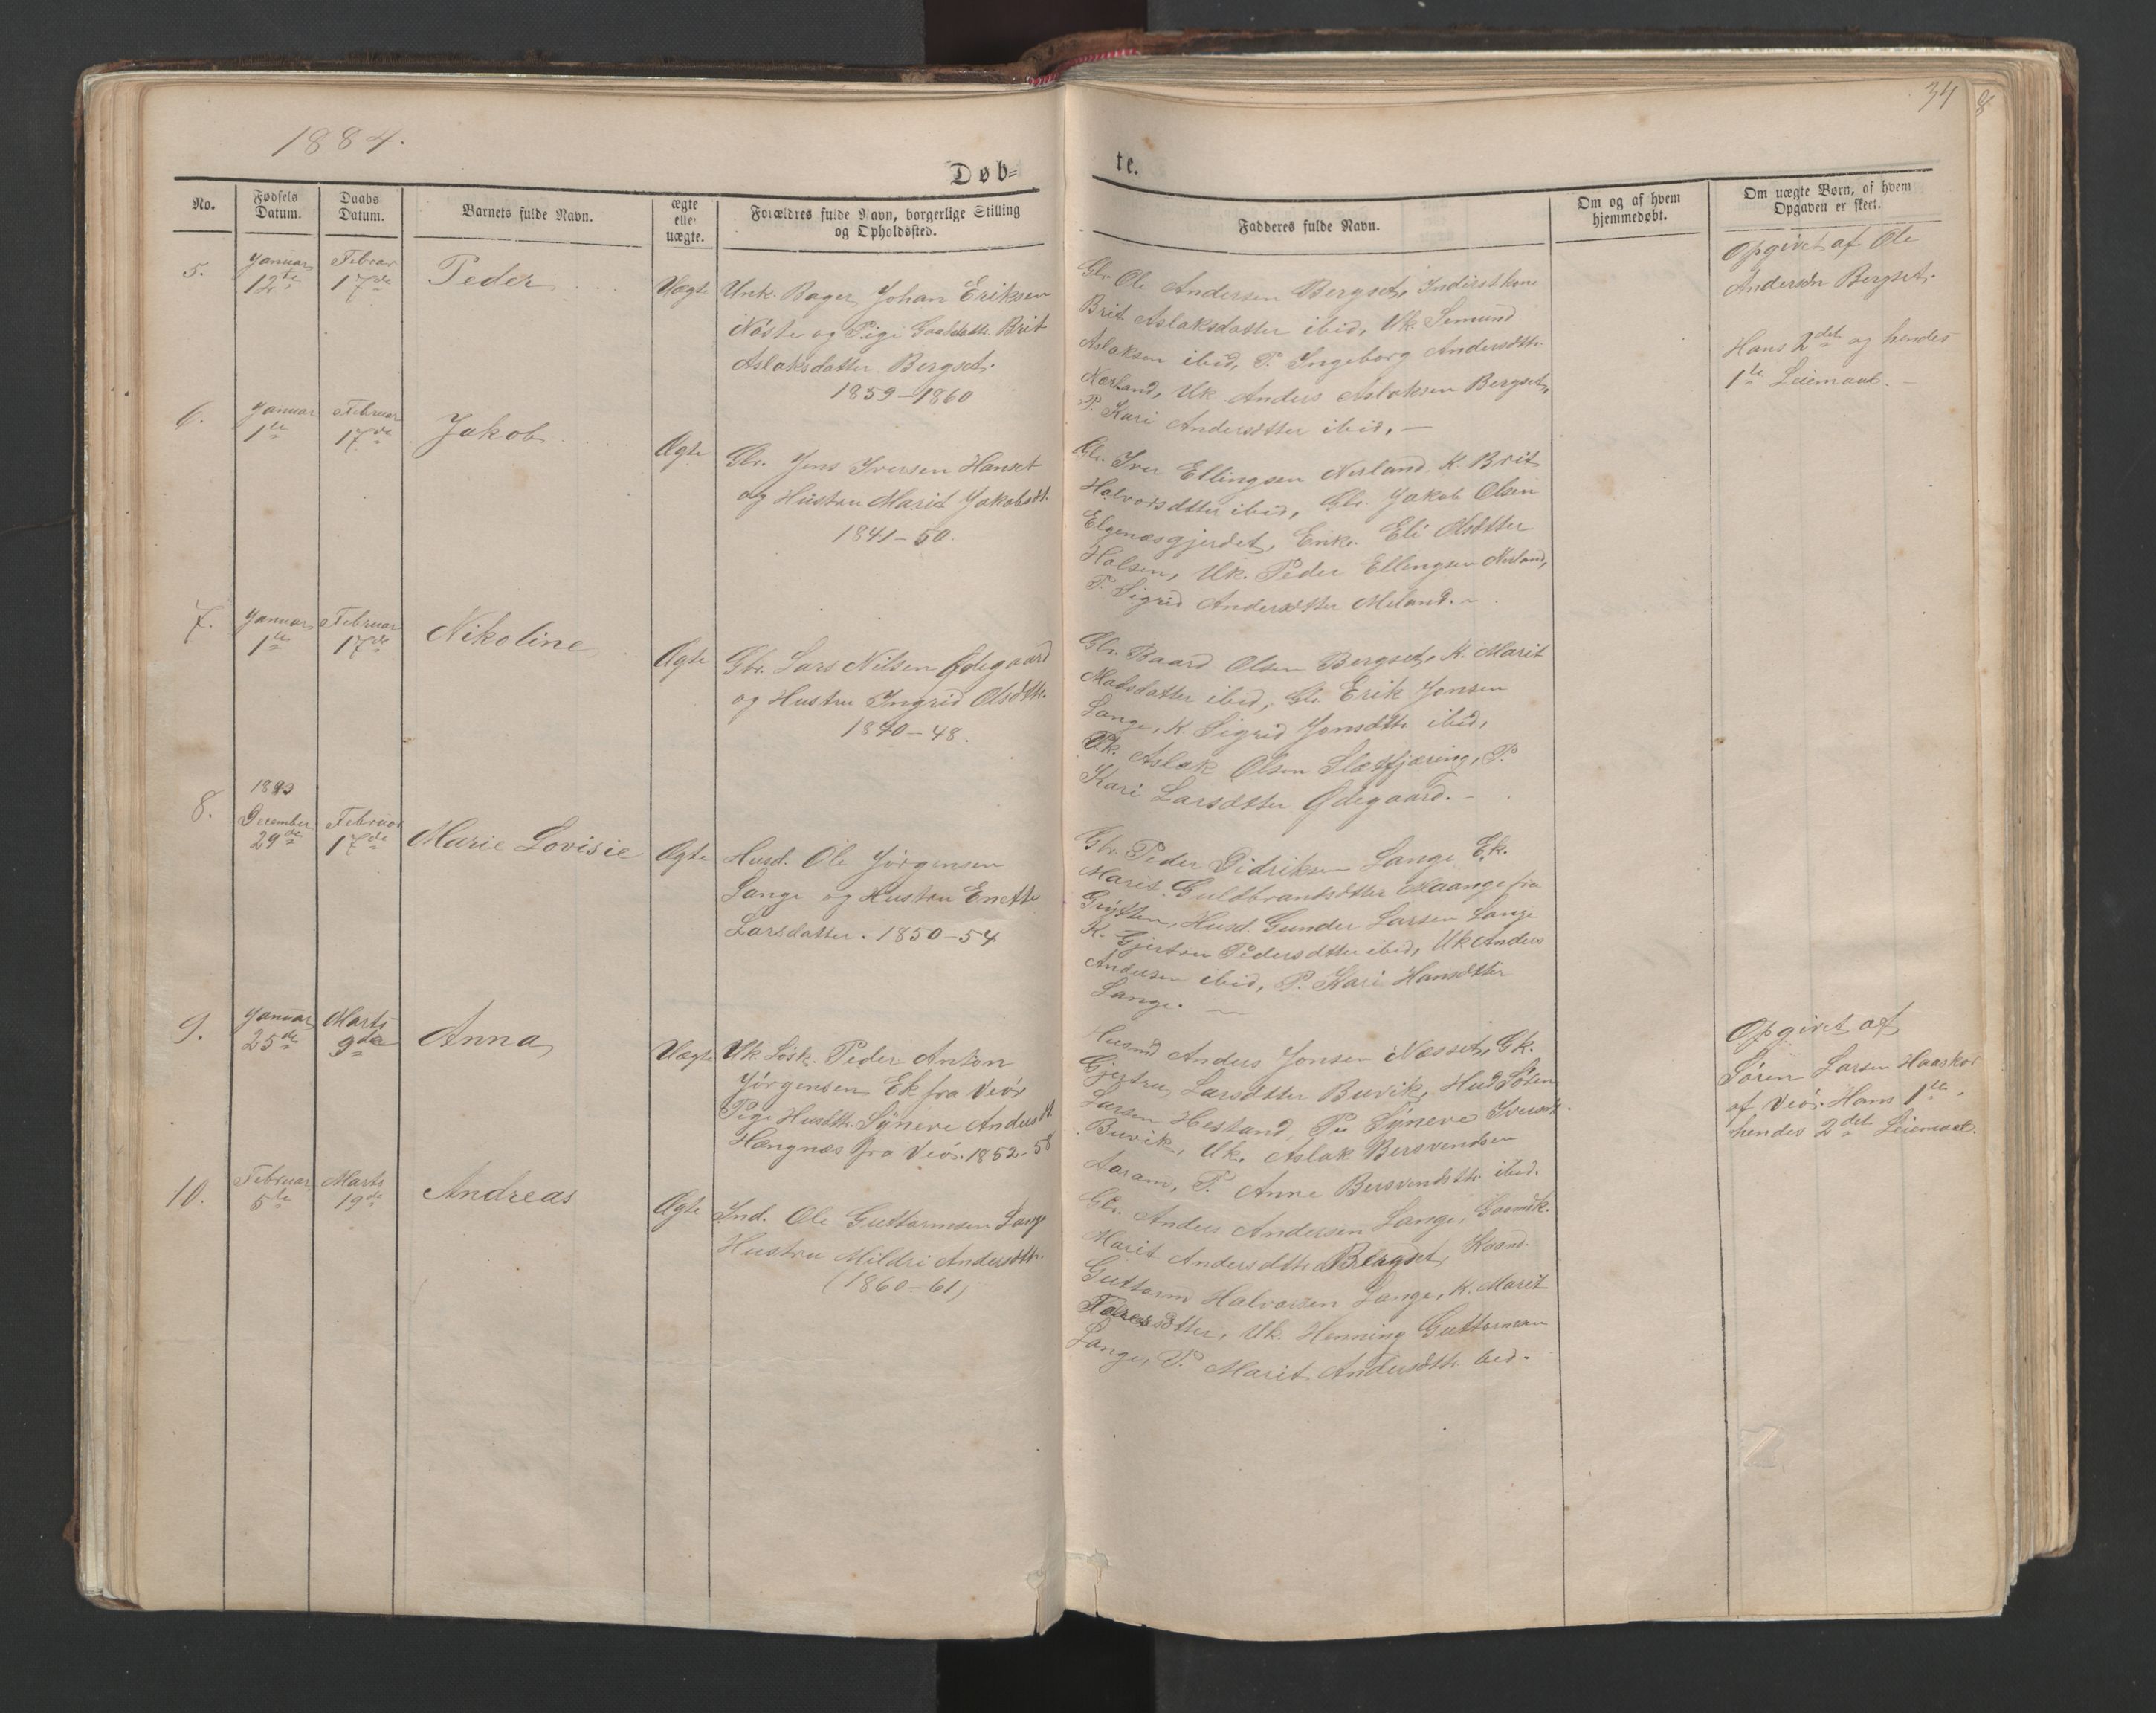 1884.
34
8
Døb=
te.
No.
Fødsels
Datum.
Daabs
Datum.
Barnets fulde Navn.
ægte
eller
uægte.
Forældres fulde Navn, borgerlige Stilling
og Opholdssted.
Fadderes fulde Navn.
Om og af hvem
hjemmedøbt.
Om uægte Børn, af hvem
Opgaven er skeet.
5.
Januar
12te
Februar
17de
Peder
Uægte
Unk. Bager Johan Eriksen
Nøste og Pige Brit
Aslaksdatter Bergset.
1859-1860
Gbr. Ole Andersen Bergset, Inderstkone
Brit Aslaksdatter ibid, Uk. Semund
Aslaksen ibid, P. Ingeborg Andersdttr.
Nerland, Uk. Anders Aslaksen Bergset,
P. Kari Andersdtter ibid. —
Opgivet af Ole
Andersen Bergset.
Hans 2det og hendes
1te Leiemaal. —
6.
Januar
1te
Februar
17de
Jakob
Ægte
Gbr. Jens Iversen Hanset
og Hustru Marit Jakobsdt.
1841-50.
Gbr. Iver Ellingsen Nerland, K. Brit
Halvorsdtter ibid, Gbr. Jakob Olsen
Elgenæsgjerdet, Enke Eli Olsdtter
Holsen, Uk. Peder Ellingsen Nerland,
P. Sigrid Andersdtter Meland. -
7.
Januar
1te
Februar
17de
Nikoline
Ægte
Gbr. Lars Nilsen Ødegaard
og Hustru Ingrid Olsdtr.
1840-48.
Gbr. Baard Olsen Bergset, K. Marit
Matsdatter ibid, Gbr Erik Jonsen
Lange, K Sigrid Jonsdttr ibid,
Uk. Aslak Olsen Sletfjæring, P.
Kari Larsdtter Ødegaard. -
8.
1883
December
29de
Februar
17de
Marie Lovisie
Ægte
Husd. Ole Jørgensen
Lange og Hustru Enette
Larsdatter. 1850-54
Gbr. Peder Didriksen Lange, Ek.
Marit Guldbrandsdtter Maange fra
Grytten, Husd. Gunder Larsen Lange
K. Gjertru Pedersdtter ibid, Uk Anders
Andersen ibid, P. Kari Hansdtter
Lange. —
9.
Januar
25de
Marts
9de
Anna
Uægte
Uk. Løsk. Peder Anton
Jørgensen Ek fra Veø
Pige Husdttr. Synere Andersdt.
Hængnæs fra Veø. 1852-58
Husmd Anders Jonsen Næsset, Gk.
Gjertru Larsdtter Buvik, Husd Søren
Larsen Hestand, Pi Synere Iversdt.
Buvik, Uk. Aslak Bersvendsen
Aaram, P. Anne Bersvendsdtr. ibid.
Opgivet af
Søren Larsen Haaskor
af Veø. Hans 1te,
hendes 2det Leiemaal.
10.
Februar
5te
Marts
19de
Andreas
Ægte
Ind. Ole Guttormsen Lange
Hustru Mildri Andersdtr.
(1860-61)
Gbr. Anders Andersen Lange, Gaamdk.
Marit Andersdttr Bergset, Kaard.
Guttorm Halvorsen Lange, K. Marit
Toresdtter, Uk. Henning Guttormsen
Lange, P. Marit Andersdttr ibid.